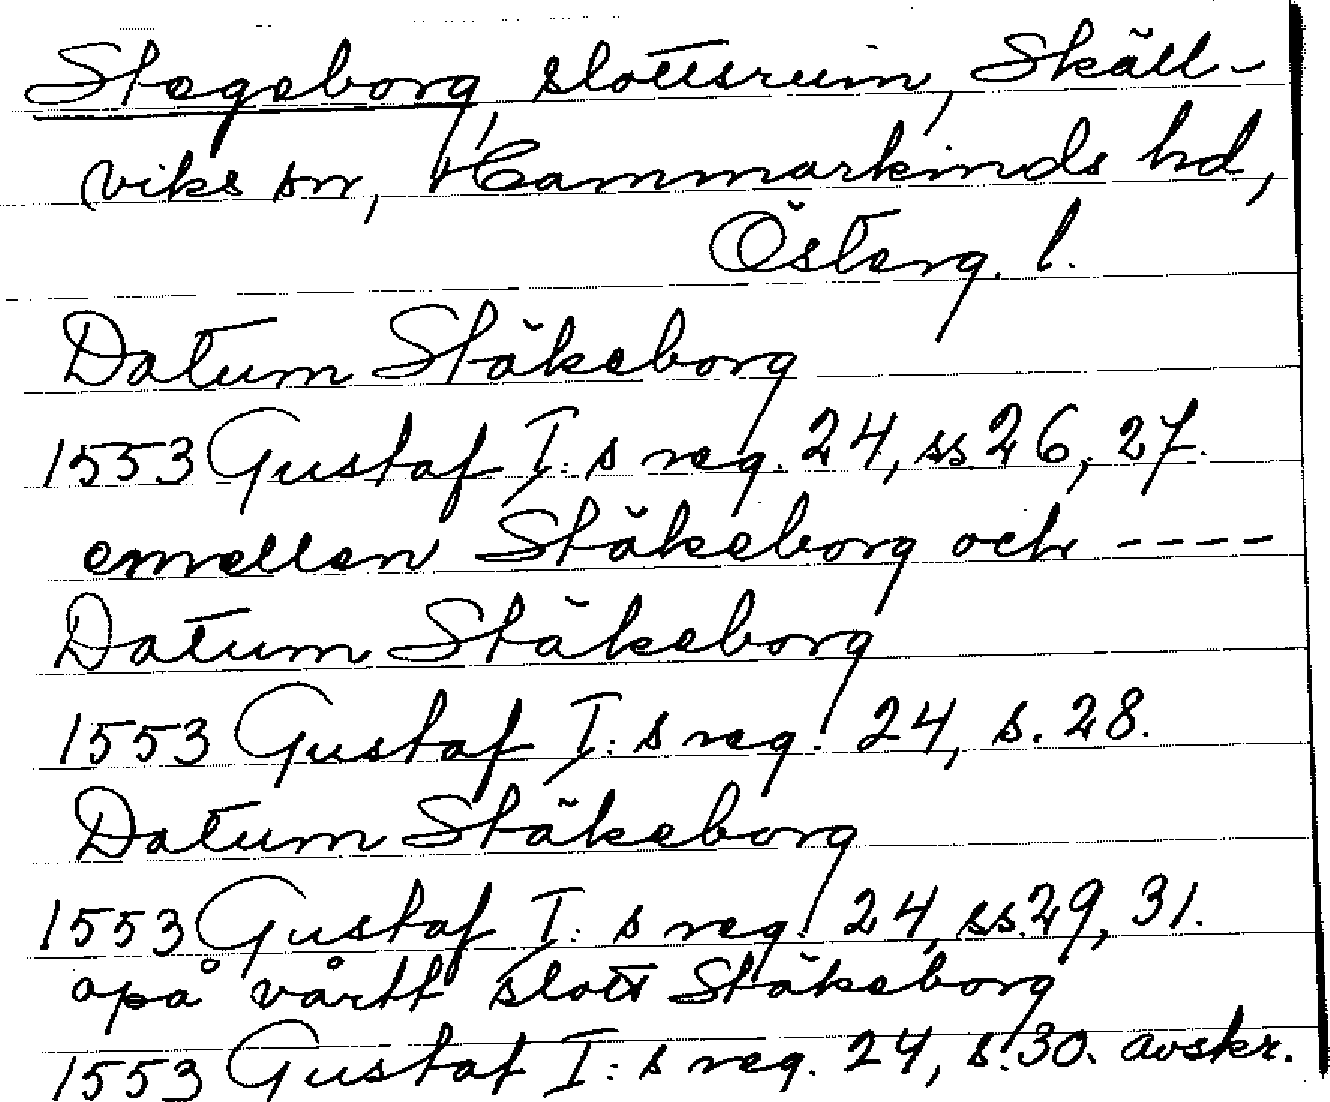 Stegeborg, slottsruin, Skäll-
viks sn, Hammarkinds hd,
Österg. l.
Datum Stäkeborg
1553 Gustaf I: s reg. 24, ss 26, 27.
emellen Stäkeborg och ----
Datum Stäkeborg
1553 Gustaf I: s reg. 24, s. 28.
Datum Stäkeborg
1553 Gustaf I: s reg. 24, ss. 29, 31.
opå vårtt slott Stäkeborg
1553 Gustaf I: s reg. 24, s. 30. avskr.